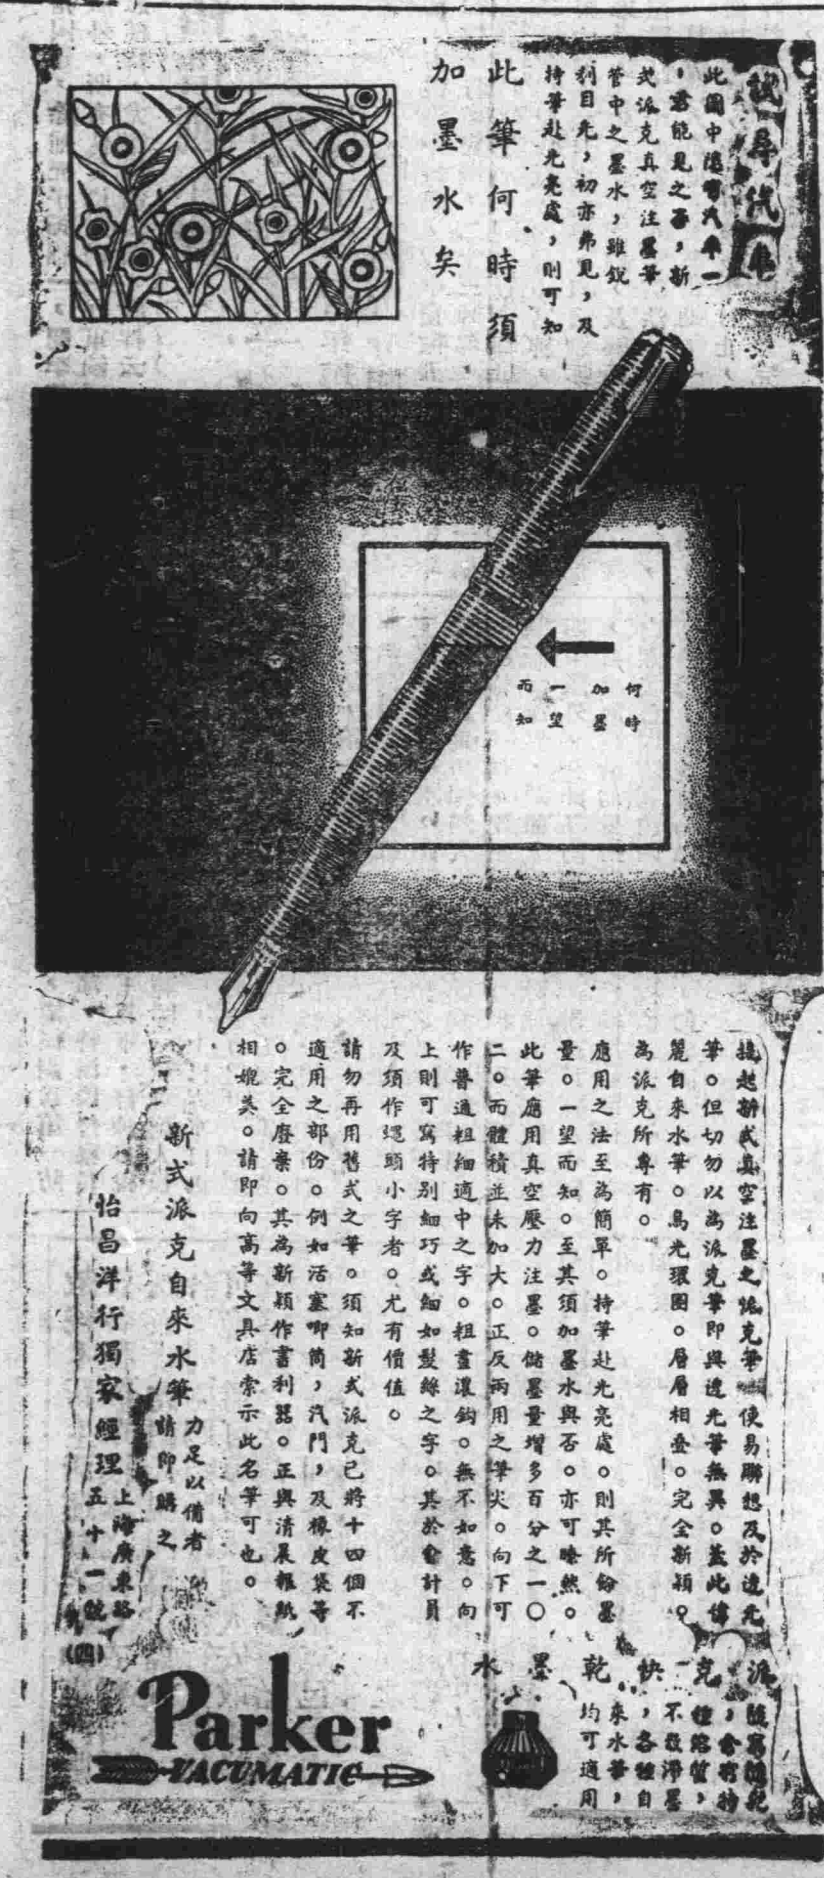 試尋汽車
此圖中隱有汽車一
，君能見之否，新
式派克真空注墨筆
管中之墨水，雖銳
利目光，初亦弗見，及
持筆赴光亮處，則可知
此筆何時須
加墨水矣
何時
加墨
一望
而知
提起新式真空注墨之派克筆 使易聯想及於透光
筆。但切勿以為派克筆即與透光筆無異。蓋此偉
麗自來水筆。烏光環圈。層層相疊。完全新穎。
為派克所專有。
應用之法至為簡單。持筆赴光亮處。則其所餘墨
量。一望而知。至其須加墨水與否。亦可瞭然。
此筆應用真空壓力注墨。儲墨量增多百分之一〇
二。而體積並未加大。正反兩用之筆尖。向下可
作普通粗細適中之字。粗畫濃鈎。無不如意。向
上則可寫特別細巧或細如髮絲之字。其於會計員
及須作蠅頭小字者。尤有價值。
請勿再用舊式之筆。須知新式派克已將十四個不
適用之部份。例如活塞唧筒，汽門，及橡皮袋等
。完全廢棄。其為新穎作書利器。正與清晨報紙
相媲美。請即向高等文具店索示此名筆可也。
新式派克自來水筆
力足以備者
請即購之
怡昌洋行獨家經理
上海廣東路
五十一號
(四)
派克快乾墨水
隨寫隨乾
，含有特
種溶質，
不致滯墨
，各種自
來水筆，
均可適用
Parker
VACUMATIC